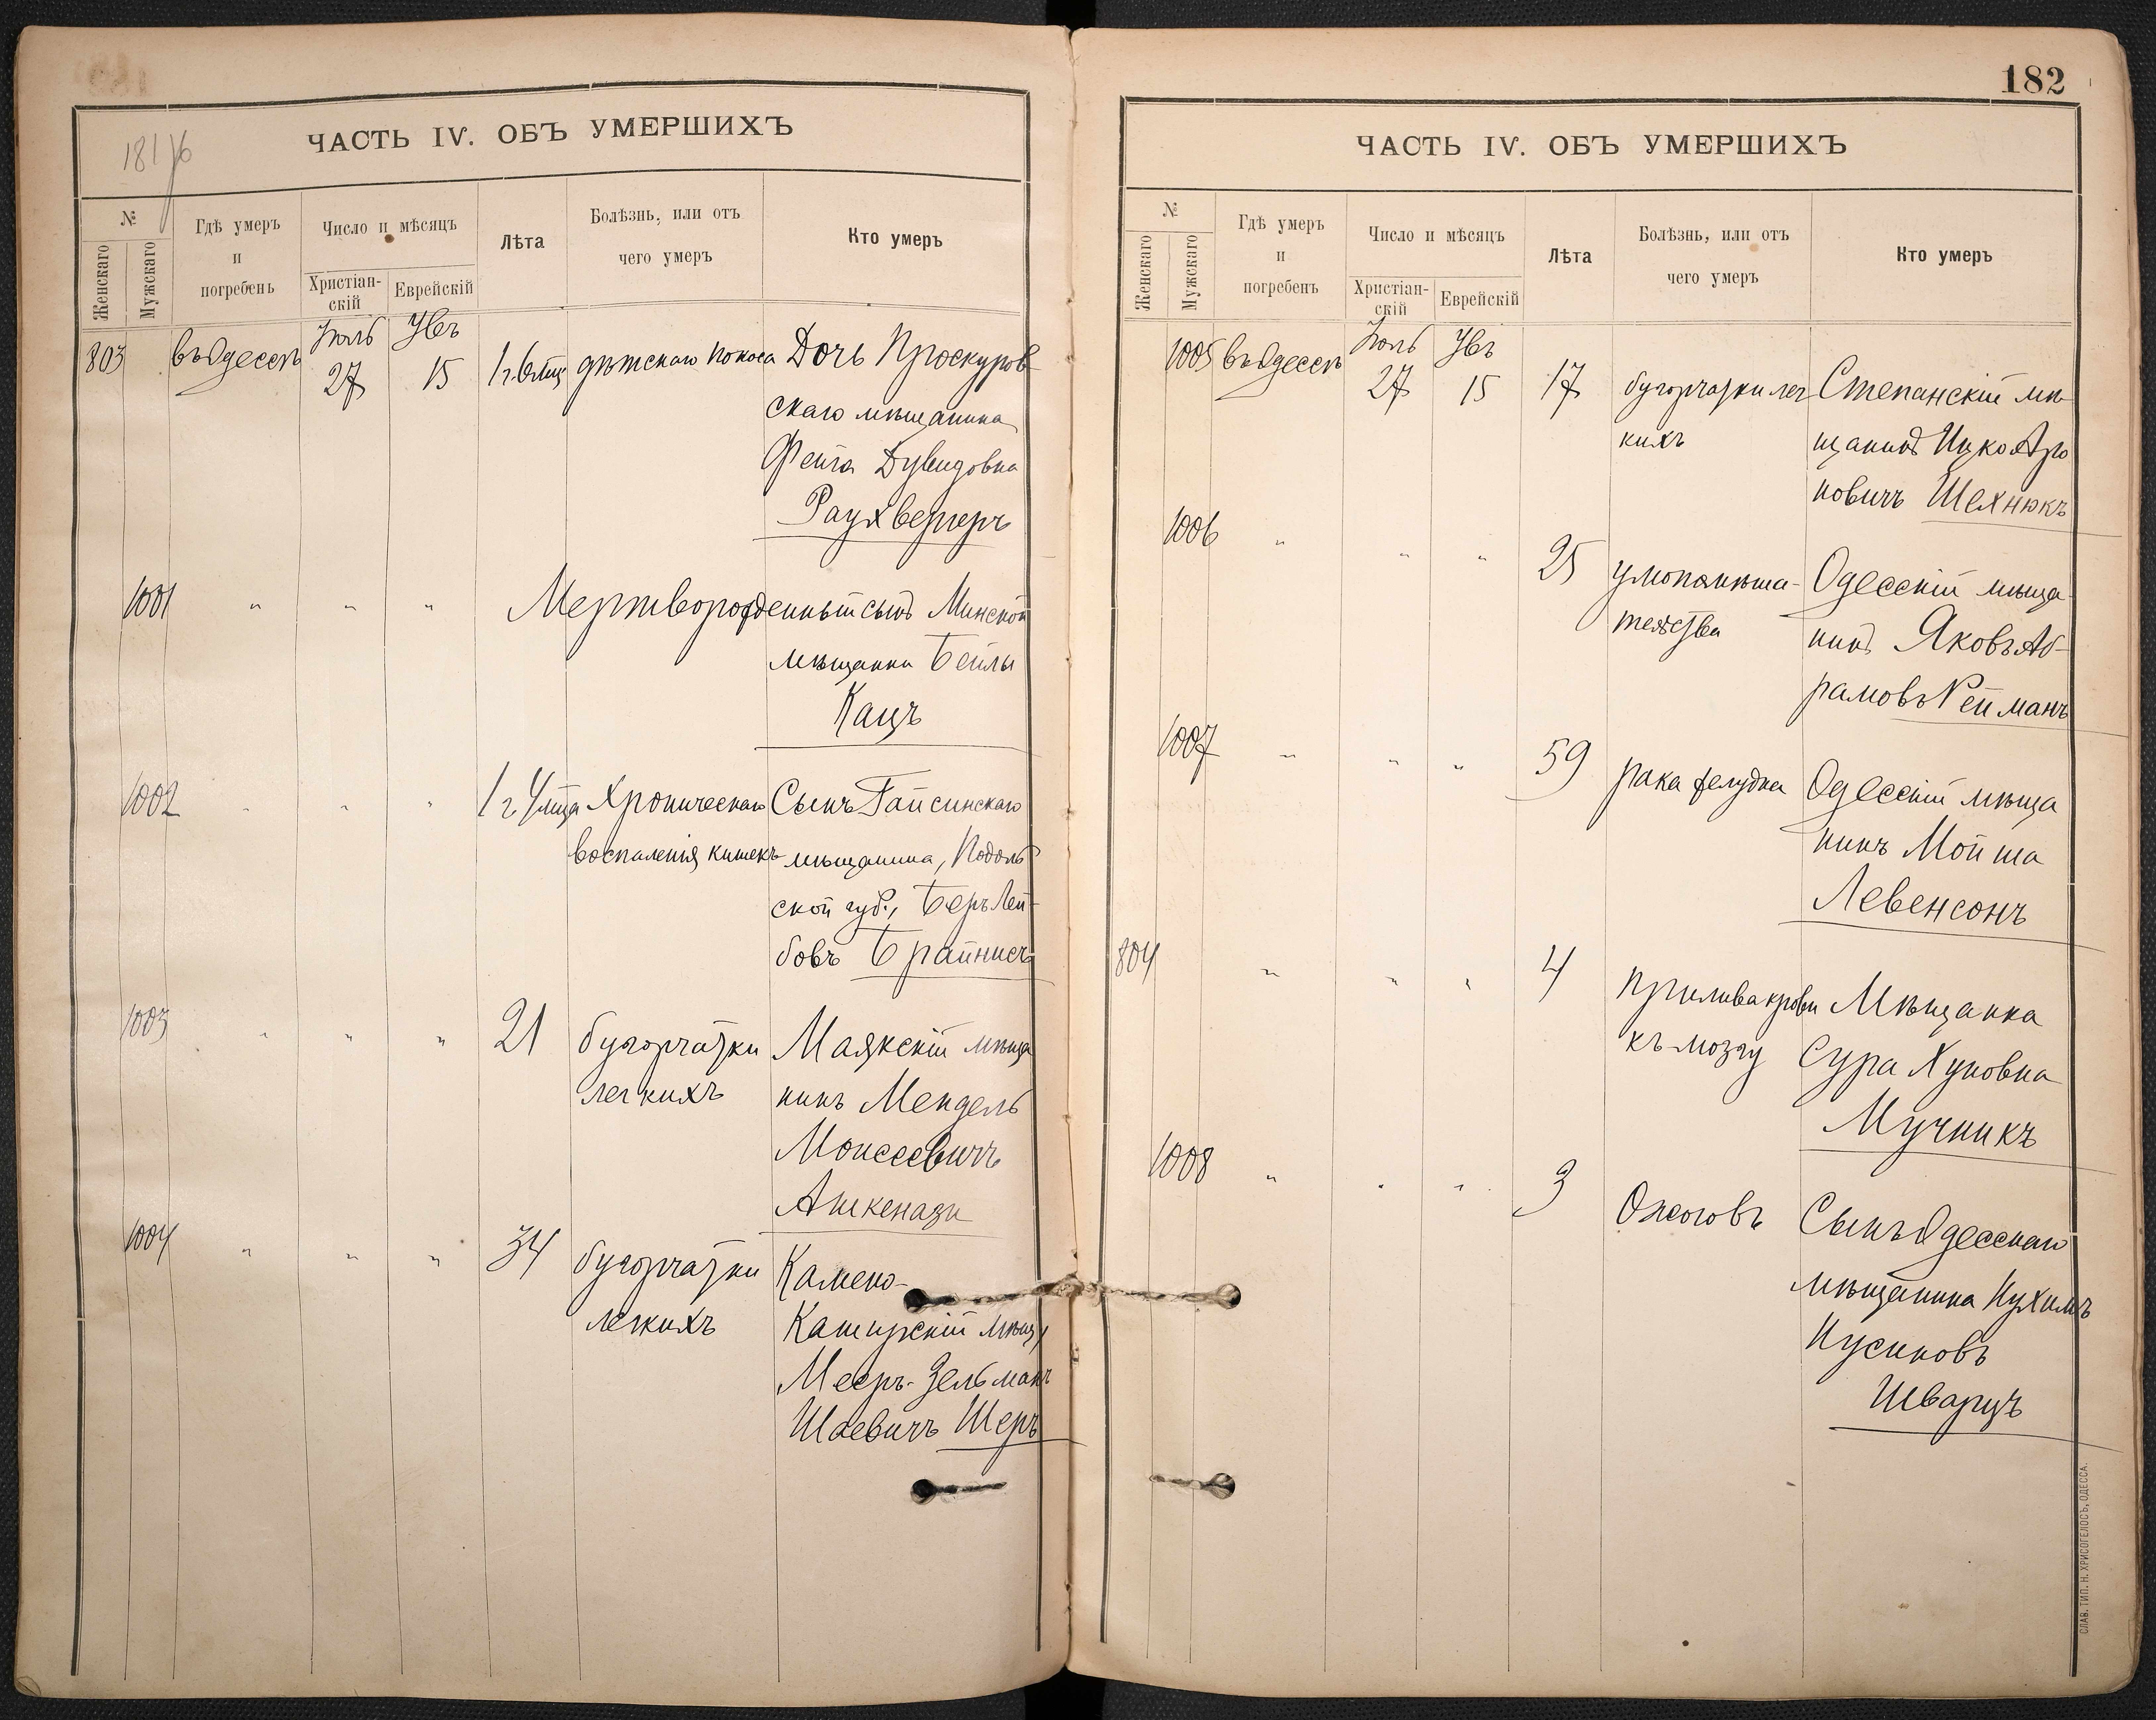 181 об
ЧАСТЬ IV. ОБЪ УМЕРШИХЪ
№
Женскаго
Мужскаго
Гдѣ умеръ
и
погребенъ
Число и мѣсяцъ
Христіан-
скій
Еврейскій
Лѣта
Болѣзнь, или отъ
чего умеръ
Кто умеръ
803 въ Одессѣ Іюль 27 Увъ 15 1 г. 6 мц дѣтскаго поноса Дочь Проскуров-
скаго мѣщанина
Фейга Дувидовна
Раухвергеръ
1001 " " " Мертворожденный сынъ Минской
мѣщанки Бейлы
Кацъ
1002 " " " 1 г 4 мца Хроническаго Сынъ Гайсинскаго
воспаленія кишекъ мѣщанина, Подоль
ской губ., Беръ Лей-
бовъ Брайнисъ
1003 " " " 21 бугорчатки Маякскій мѣща
легкихъ нинъ Мендель
Моисеевичъ
Ашкенази
1004 " " " 34 бугорчатки Камено-
легкихъ Каширскій мѣщ
Мееръ-Зельманъ
Шаевичъ Шеръ
182
ЧАСТЬ IV. ОБЪ УМЕРШИХЪ
№
Женскаго
Мужскаго
Гдѣ умеръ
и
погребенъ
Число и мѣсяцъ
Христіан-
скій
Еврейскій
Лѣта
Болѣзнь, или отъ
чего умеръ
Кто умеръ
1005 въ Одессѣ Іюль 27 Увъ 15 17 бугорчатки лег Степанскій мѣ
кихъ щанинъ Ицко Аро
новичъ Шехнюкъ
1006 " " " 25 умопомѣша- Одесскій мѣща
тельства нинъ Яковъ Аб-
рамовъ Рейманъ
1007 " " " 59 рака желудка Одесскій мѣща
нинъ Мойша
Левенсонъ
804 " " " 4 прилива крови Мѣщанка
къ мозгу Сура Хуновна
Мучникъ
1008 " " " 3 Ожоговъ Сынъ Одесскаго
мѣщанина Нухимъ
Нусиновъ
Шварцъ
СЛАВ. ТИП. Н. ХРИСОГЕЛОСЪ, ОДЕССА.